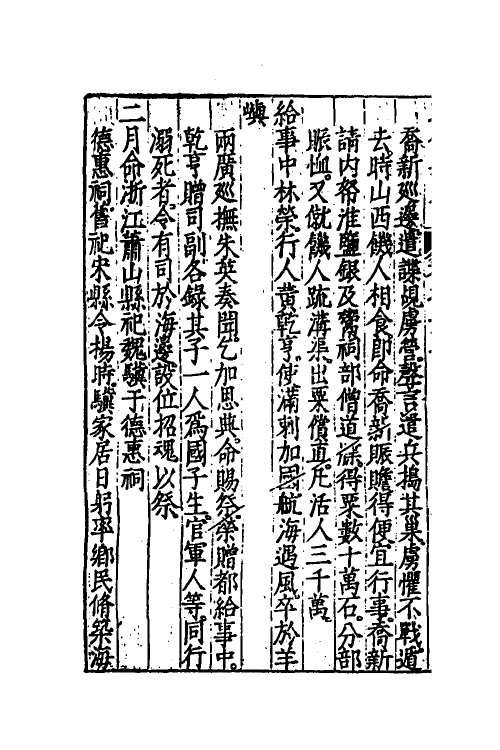 喬新巡邊遣諜覘虜營聲言遣兵搗其巢虜懼不戰遁
去時山西饑人相食即命喬新賑贍得便宜行事喬新
請内帑淮鹽銀及鬻祠部僧道牒得粟數十萬石分部
賑恤又僦饑人疏溝渠出粟償直凡活人三千萬
給事中林榮行人黄乾亨使滿剌加國航海遇風卒於羊
嶼
兩廣巡撫朱英奏聞乞加恩典命賜祭榮贈都給事中
乾亨贈司副各錄其子一人爲國子生官軍人等同行
溺死者令有司於海邊設位招魂以祭
二月命浙江蕭山縣祀魏驥于德惠祠
德惠祠舊祀宋縣令楊時驥家居日躬率鄉民脩築海